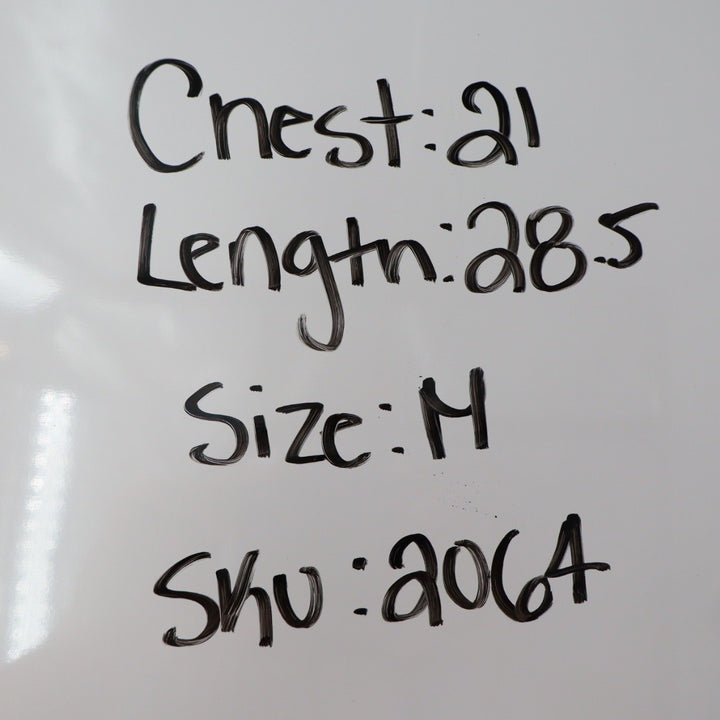 Chest: 21
Length: 28.5
Size: M
SKU: 2064